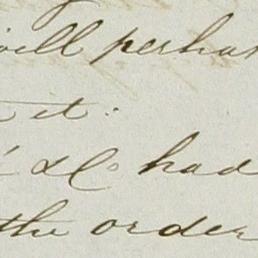 will perhaps
it.
& Co had
the order